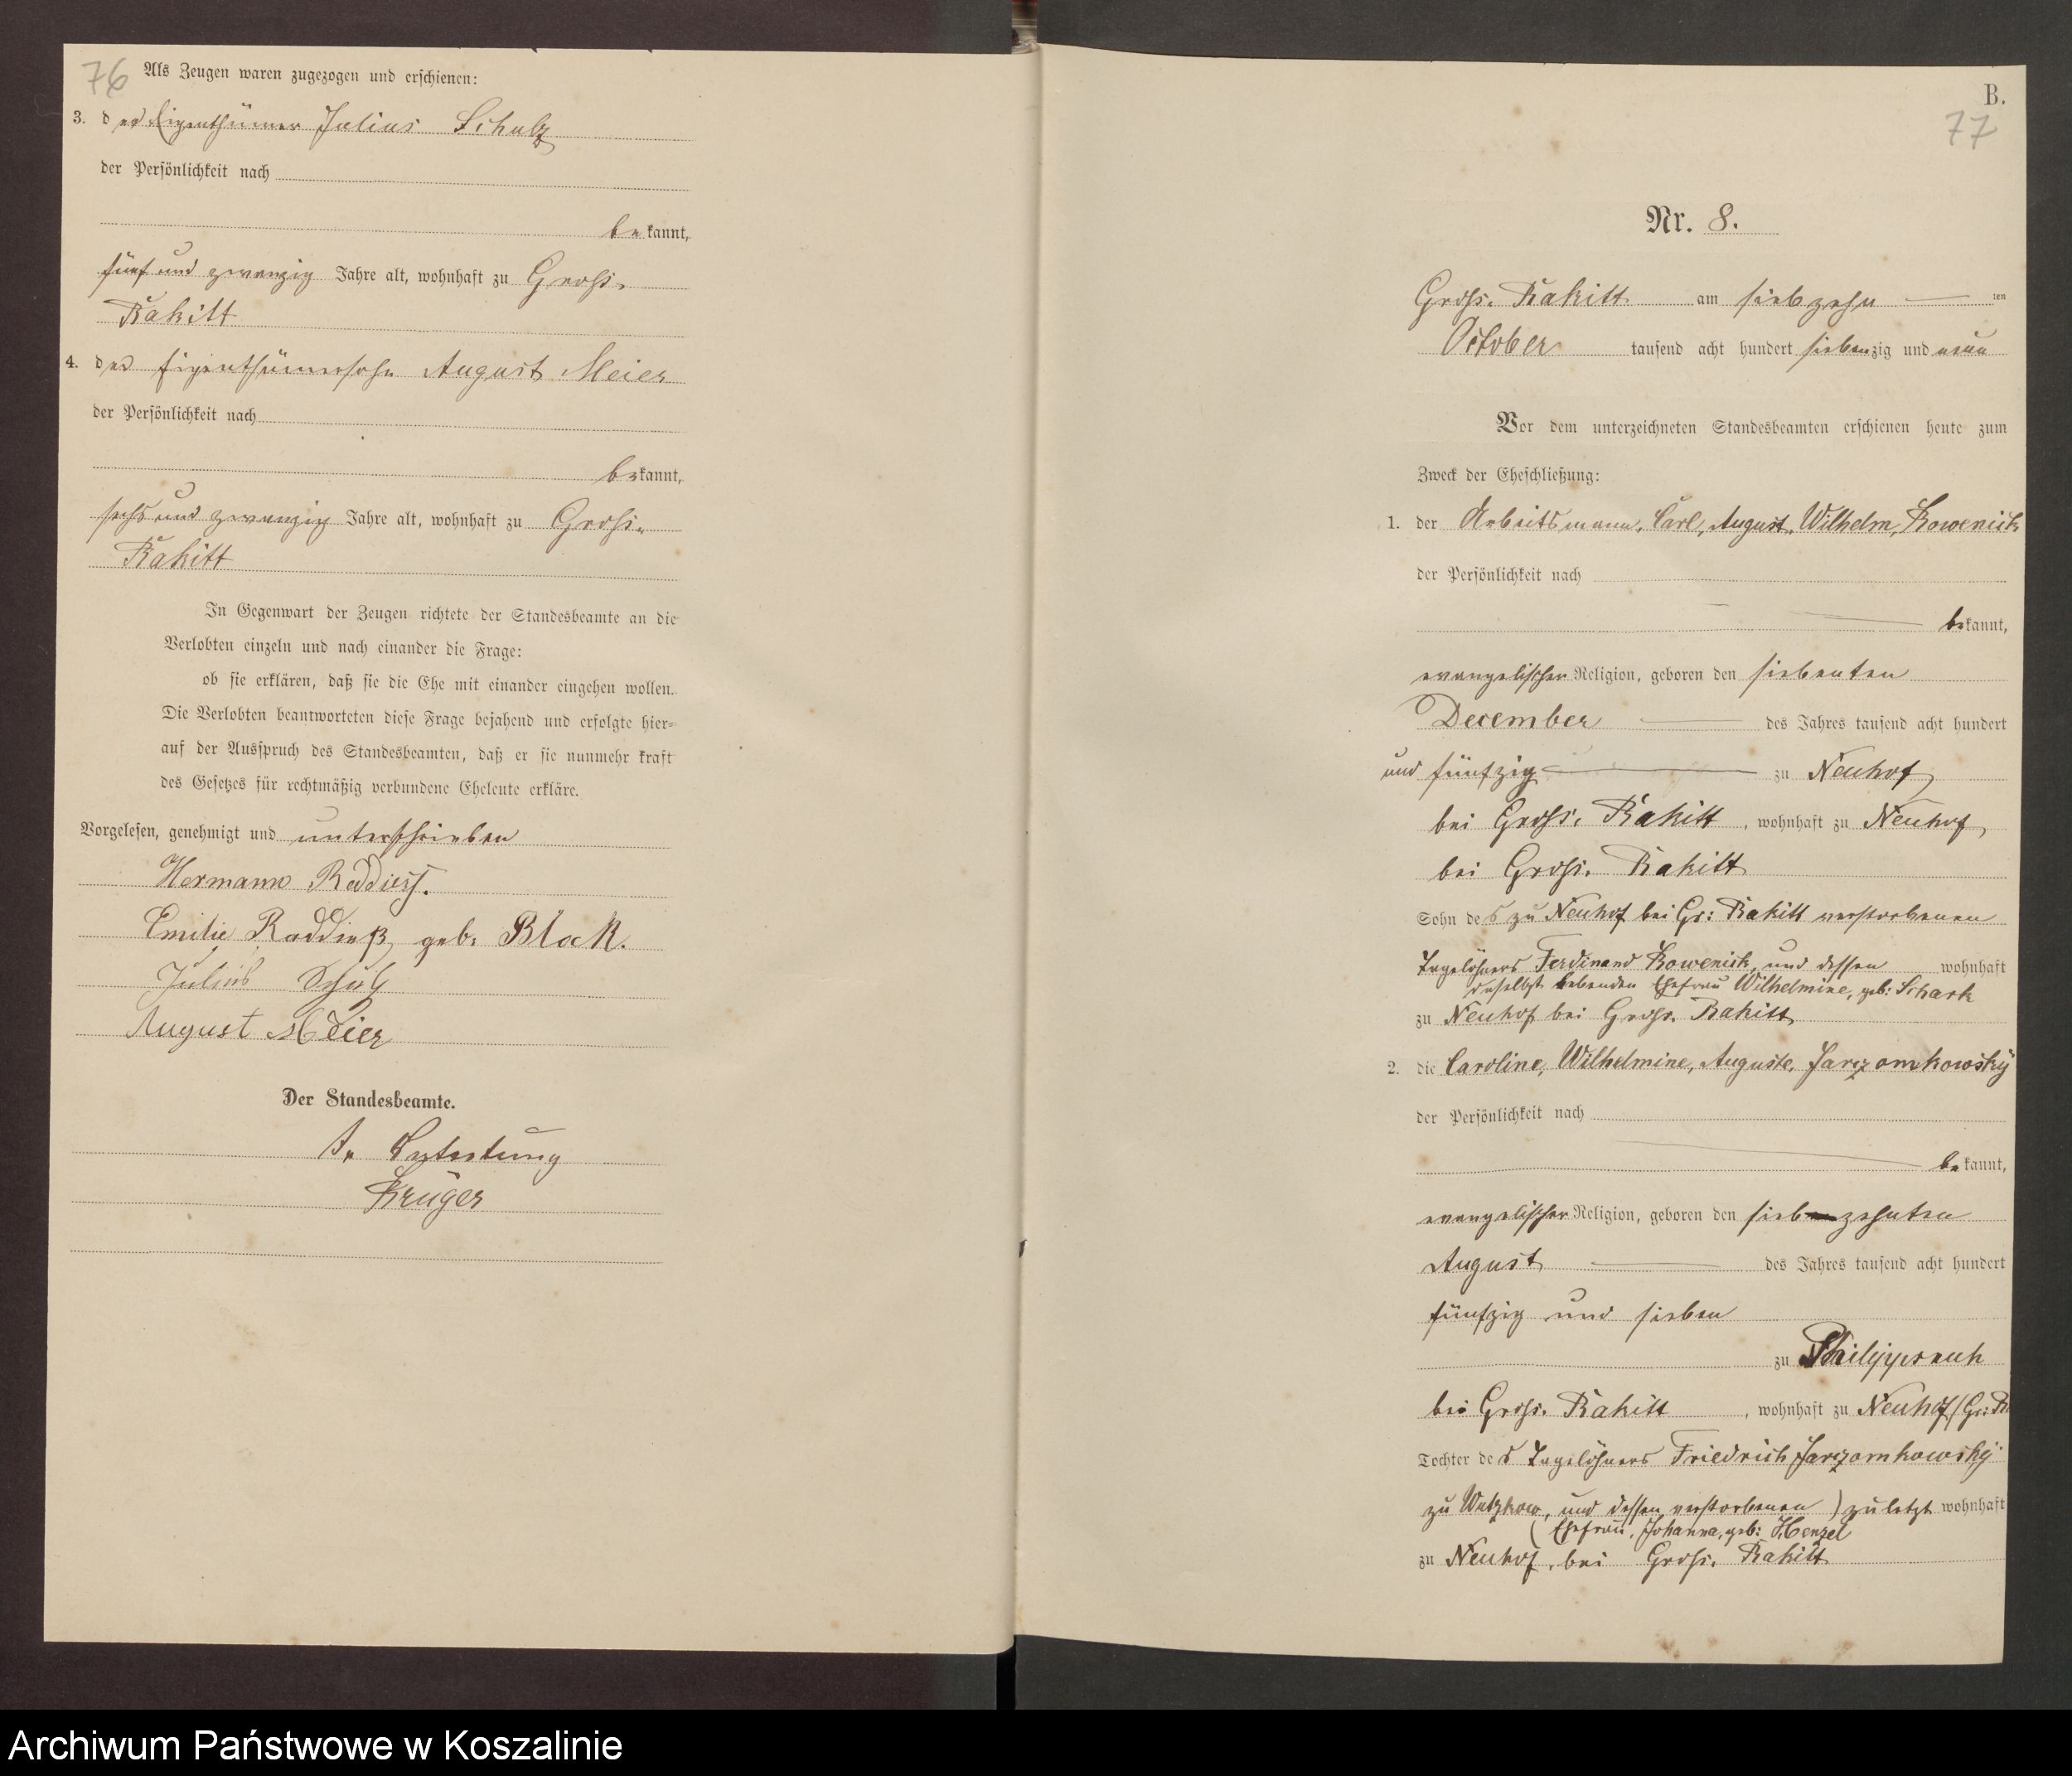 76
Als Zeugen waren zugezogen und erschienen:
3. der Eigenthümer Julius Schulz
der Persönlichkeit nach
bekannt,
fünf und zwanzig Jahre alt, wohnhaft zu Gross-
Rakitt
4. der Eigenthümersohn August Meier
der Persönlichkeit nach
bekannt,
sechs und zwanzig Jahre alt, wohnhaft zu Gross-
Rakitt
In Gegenwart der Zeugen richtete der Standesbeamte an die
Verlobten einzeln und nach einander die Frage:
ob sie erklären, daß sie die Ehe mit einander eingehen wollen.
Die Verlobten beantworteten diese Frage bejahend und erfolgte hier-
auf der Ausspruch des Standesbeamten, daß er sie nunmehr kraft
des Gesetzes für rechtmäßig verbundene Eheleute erkläre.
Vorgelesen, genehmigt und unterschrieben
Hermann
Emilie Raddieß geb. Block.
Julius Schulz
August Meier
Der Standesbeamte.
Krüger
B.
77
Nr. 8.
Gross-Rakitt am siebzehn ten
October tausend acht hundert siebenzig und neun
Vor dem unterzeichneten Standesbeamten erschienen heute zum
Zweck der Eheschließung:
1. der Arbeitsmann, Carl, August, Wilhelm, Kowenick
der Persönlichkeit nach
bekannt,
evangelischer Religion, geboren den siebenten
December des Jahres tausend acht hundert
und fünfzig zu Neuhof,
bei Gross-Rakitt, wohnhaft zu Neuhof,
bei Gross-Rakitt
Sohn des zu Neuhof bei Gr: Rakitt verstorbenen
Tagelöhners Ferdinand Kowenick, und dessen wohnhaft
daselbst lebenden Ehefrau Wilhelmine, geb: Schark
zu Neuhof bei Gross-Rakitt
2. die Caroline, Wilhelmine, Auguste, Jarczomkowsky
der Persönlichkeit nach
bekannt,
evangelischer Religion, geboren den siebzehnten
August des Jahres tausend acht hundert
fünfzig und sieben
zu Philippsruh
bei Gross-Rakitt, wohnhaft zu Neuhof/Gr: R
Tochter des Tagelöhners Friedrich Jarczomkowsky
zu Wutzkow, und dessen verstorbenen) zuletzt wohnhaft
(Ehefrau, Johanna, geb: Henzel
zu Neuhof, bei Gross-Rakitt
Archiwum Państwowe w Koszalinie